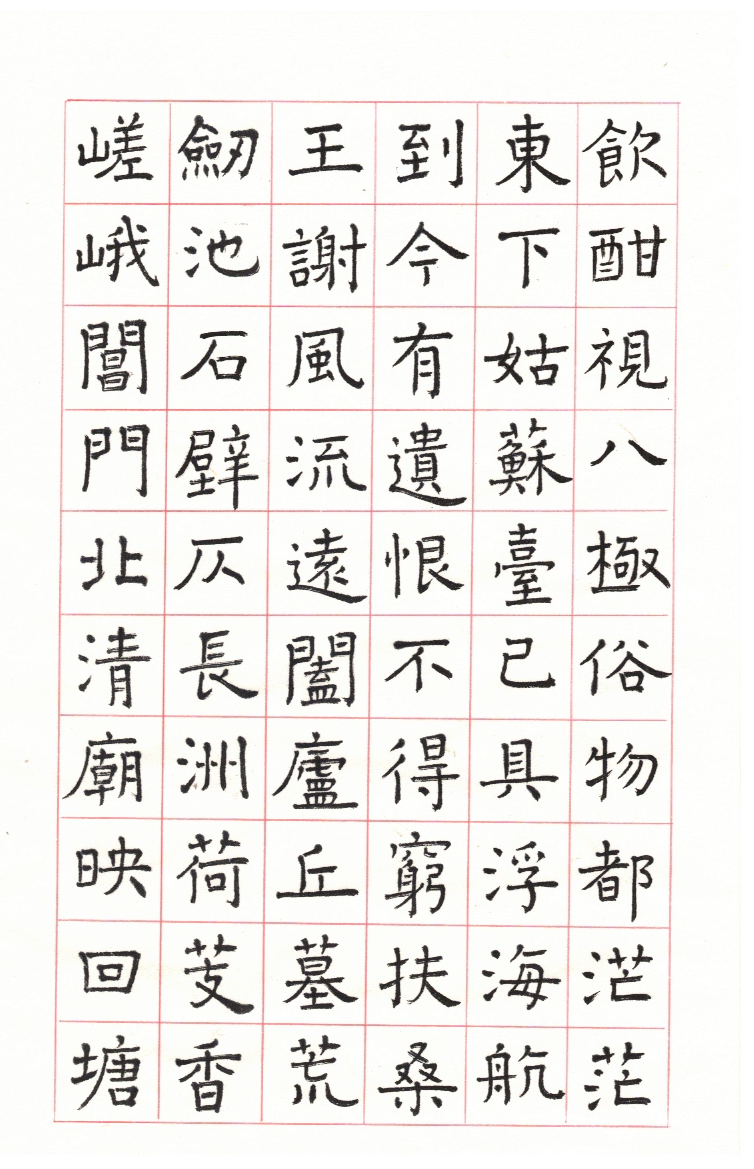 飲酣視八極俗物都茫茫
東下姑蘇臺已具浮海航
到今有遺恨不得窮扶桑
王謝風流遠闔廬丘墓荒
劒池石壁仄長洲荷芰香
嵯峨閶門北清廟映回塘